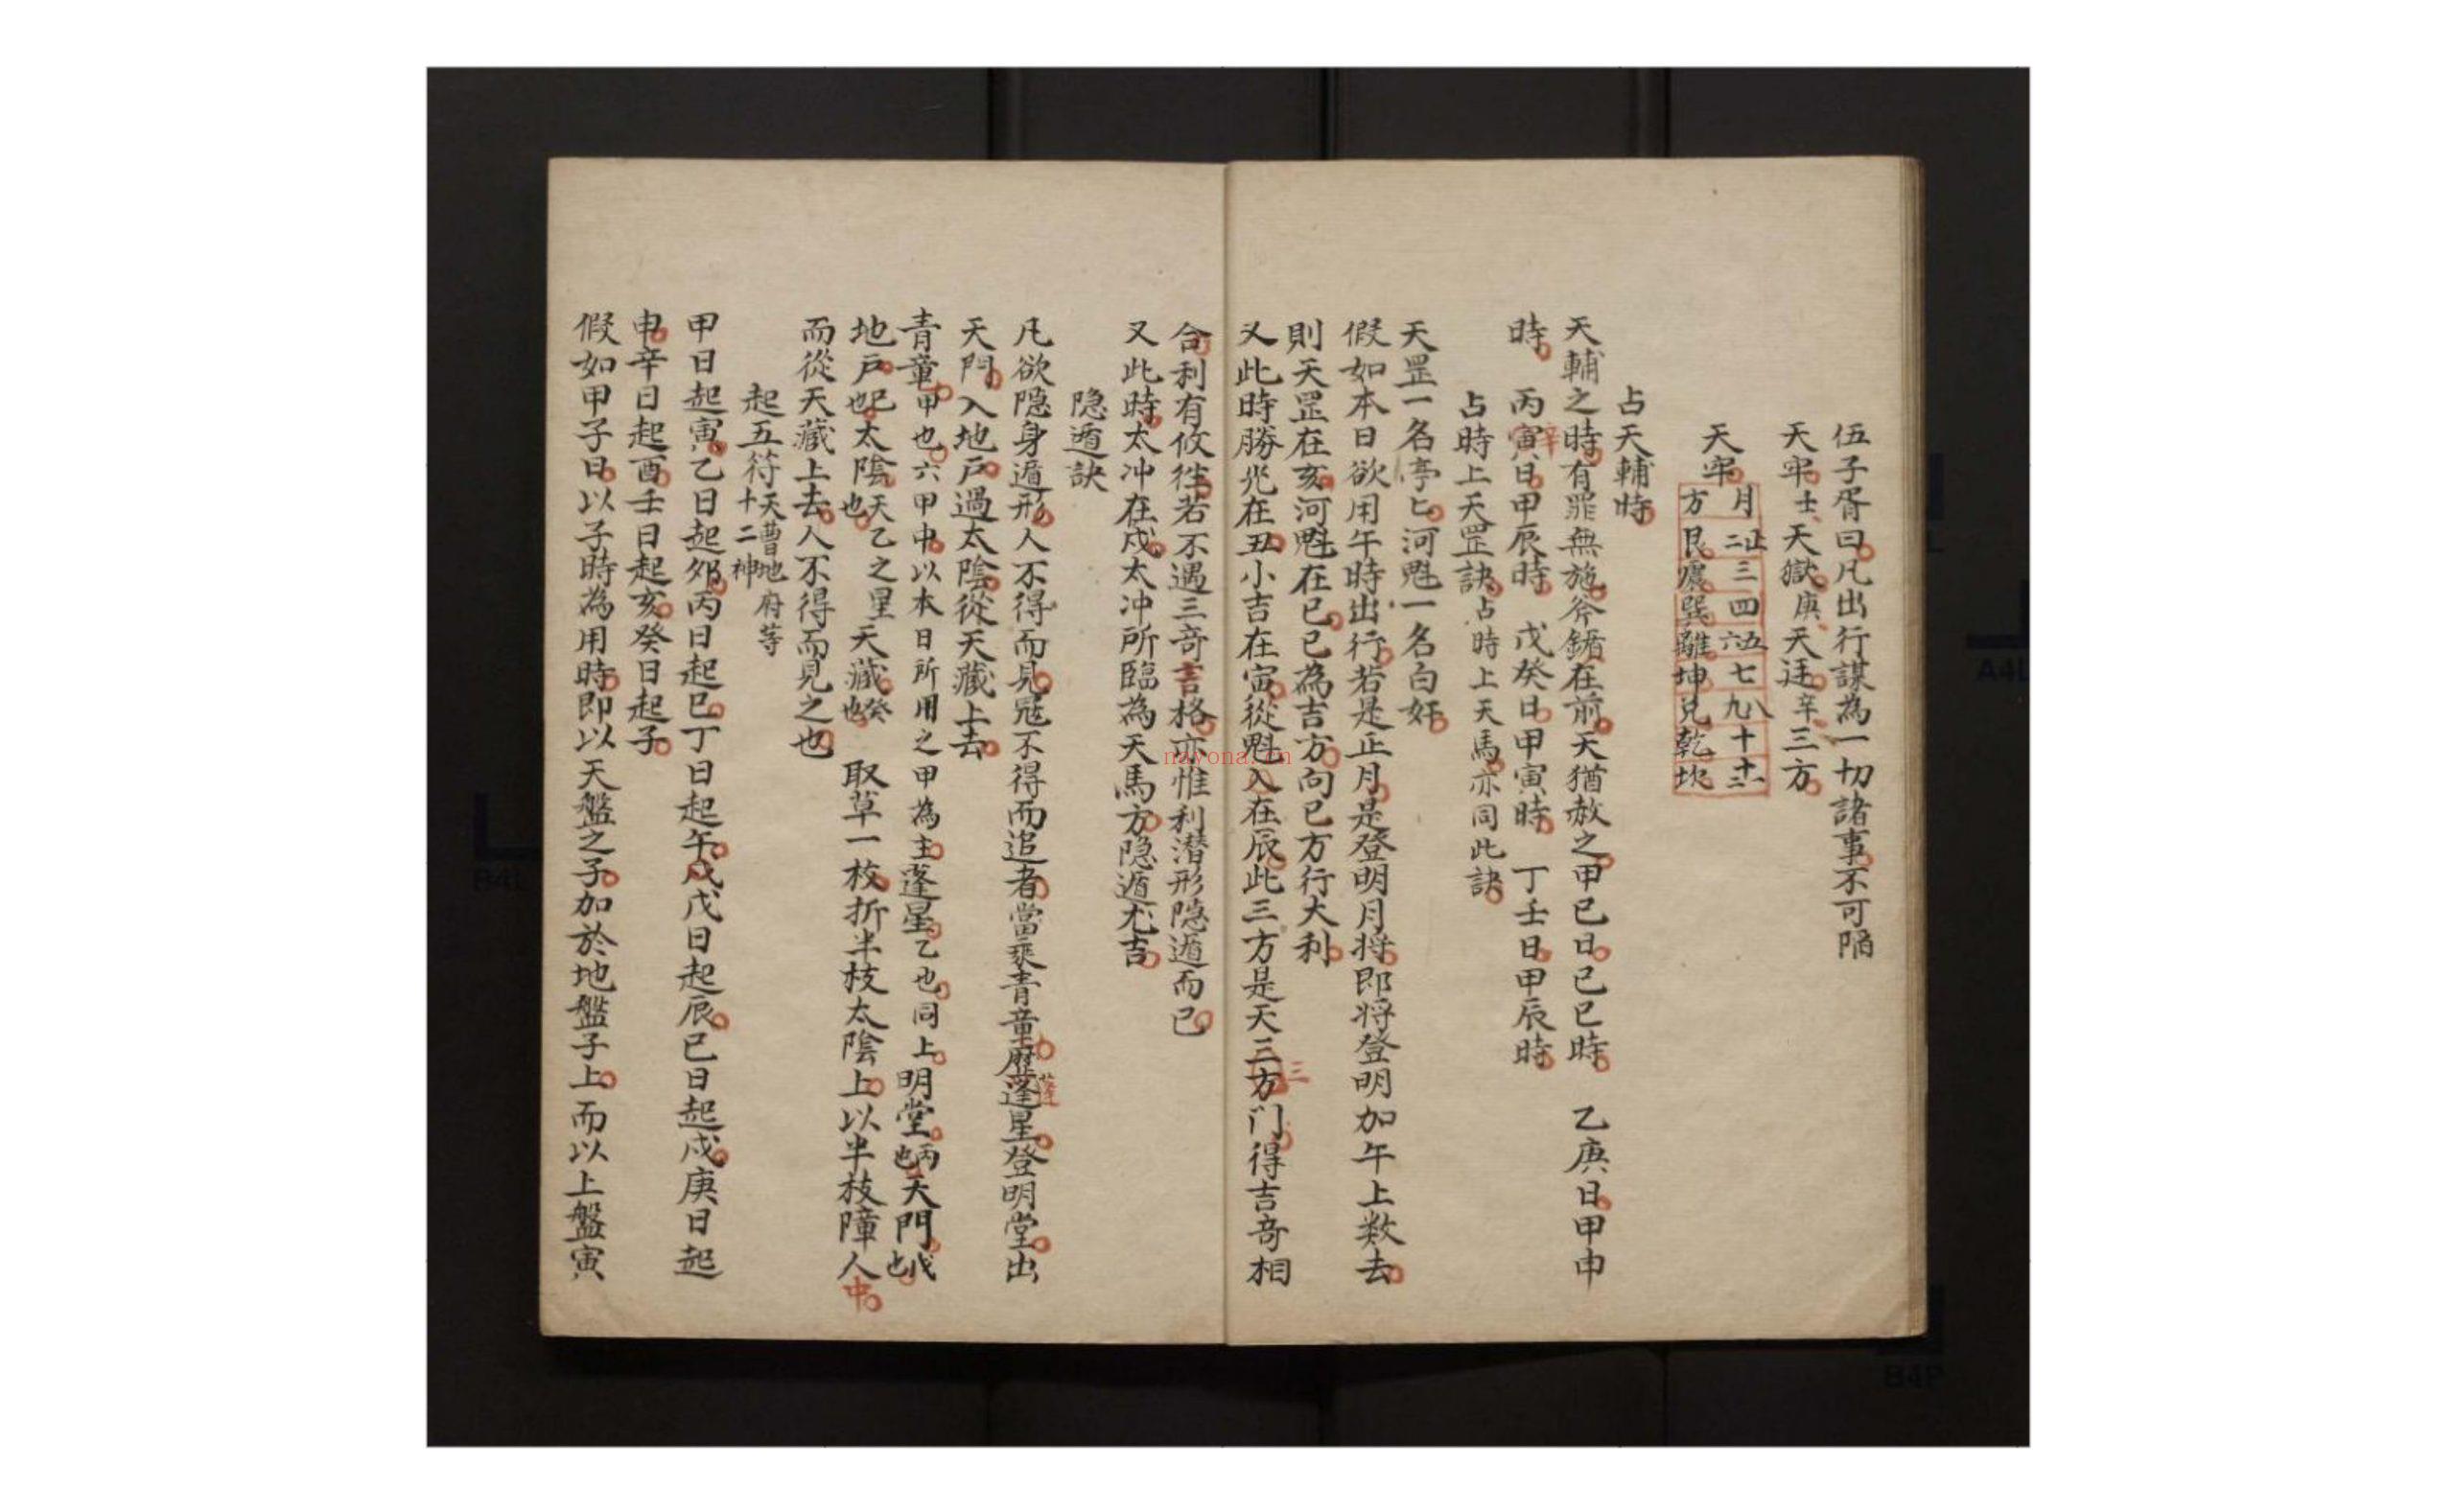 伍子胥曰凡出行謀為一切諸事不可陷
天牢壬天獄庚天廷辛三方
天牢
月 正二 三 四 五六 七 八九 十 十一十二
方 艮 震 巽 離 坤 兌 乾 坎
占天輔時
天輔之時有罪無施斧鑕在前天猶赦之甲己日己巳時 乙庚日甲申
時 丙辛日甲辰時 戊癸日甲寅時 丁壬日甲辰時
占時上天罡訣占時上天馬亦同此訣
天罡一名亭亭河魁一名白奸
假如本日欲用午時出行若是正月是登明月將即將登明加午上數去
則天罡在亥河魁在巳巳為吉方向巳方行大利
又此時勝光在丑小吉在寅從魁入在辰此三方是天三門得吉奇相
合利有攸往若不遇三奇吉格亦惟利潛形隱遁而已
又此時太冲在戌太冲所臨為天馬方隱遁尤吉
隐遁訣
凡欲隱身遁形人不得而見冦不得而追者當乘青童歷蓬星登明堂出
天門入地戶過太陰從天藏上去
青童甲也六甲中以本日所用之甲為主蓬星乙也同上明堂丙也天門戊也
地戶巳也太陰天乙之星也天藏癸也 取草一枝折半枝太陰上以半枝障人中
而從天藏上去人不得而見之也
起五符天曹地府荨十二神
甲日起寅乙日起夘丙日起巳丁日起午戊日起辰己日起戌庚日起
申辛日起酉壬日起亥癸日起子
假如甲子日以子時為用時即以天盤之子加於地盤子上而以上盤寅
nayona.cn